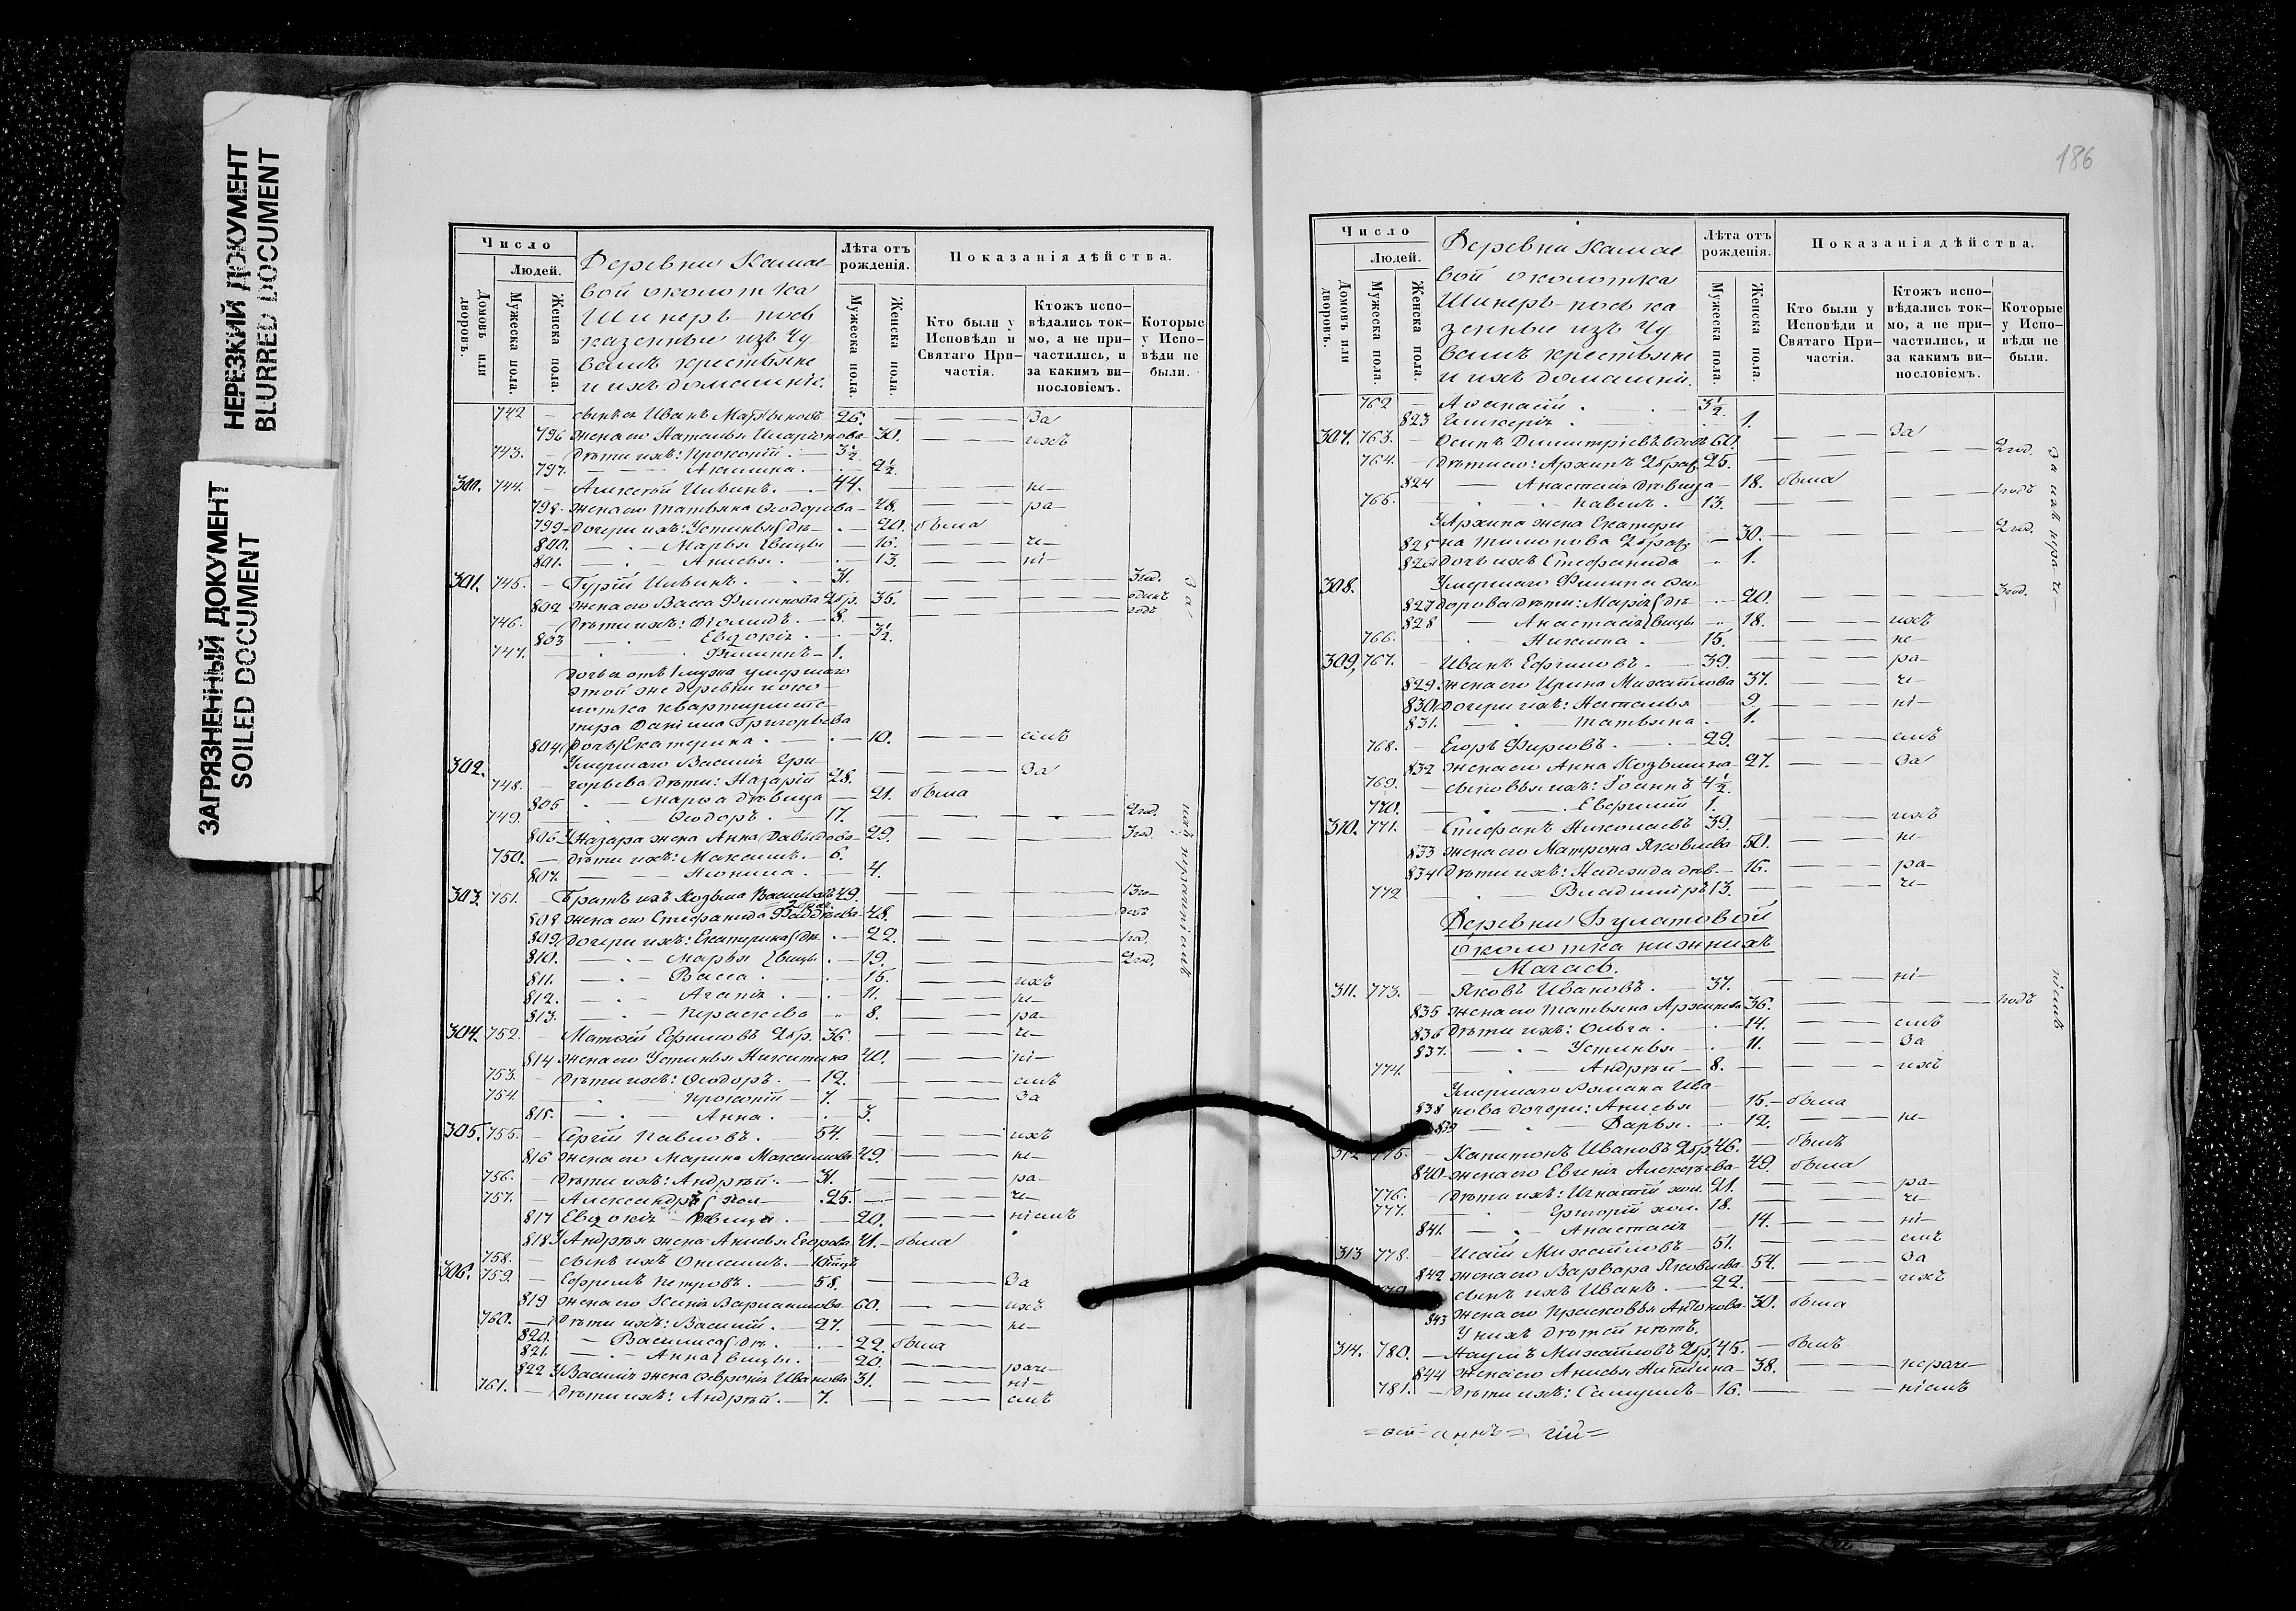 НЕРЕЗКИЙ ДОКУМЕНТ
BLURRED DOCUMENT
ЗАГРЯЗНЕННЫЙ ДОКУМЕНТ
SOILED DOCUMENT
Число
Людей.
Домовъ или дворовъ.
Мужеска пола.
Женска пола.
Деревни Камае-
вой околотка
Шинеръ-пось
казенные изъ Чу
вашъ крестьяне
и ихъ домашніи.
Лѣта отъ рожденія.
Мужеска пола.
Женска пола.
Показанія дѣйства.
Кто были у Исповѣди и Святаго При-частія.
Ктожъ испо-вѣдались ток-мо, а не при-частились, и за какимъ ви-нословіемъ.
Которые у Испо-вѣди не были.
742 — сынъ ея Иванъ 26. — За
796 жена его Наталья Иларіонова 30. — ихъ
743. — дѣти ихъ: Прокопій 3½
797. — Акилина 2½
300. 744. Алексѣй Ильинъ. 44. — не—
798. жена его Татьяна Ѳеодорова — 48. — ра—
799 дочери ихъ: Устинья дѣ— 20. была
800. — Марья вицы — 16. — че—
801. — Анисья — 13. — ні—
301. 745. — Гурій Ильинъ. 31. — 3 год.
802 жена его Васса Филипова 2 бр. 35. — одинъ
746. — дѣти ихъ: Діомидъ. — 8. — годъ
803 — Евдокія 3½
747. — Филиппъ — 1.
умершаго
этой же деревни и око-
лотка квартирмис-
тра Даніила Григорьева
804 дочь Екатерина — 10. — емъ
302. Умершаго Василія Гри-
748. — горьева дѣти: Назарій 28. — За
805 — Марѳа дѣвица — 21. была
749. — Ѳеодоръ. — 17. — 2 год.
806 У Назара жена Анна Давыдова — 29. — 3 год.
750. — дѣти ихъ: Максимъ. — 6.
807. — 4.
303. 751. — Братъ ихъ Козьма Васильевъ 49.
808 жена его Стефанида 48.
809 дочери ихъ: Екатерина дѣ 22. — год.
810. — Марья вицы — 19. — 2 год.
811. — Васса — 15. — ихъ
812. — Агапія — 11. — не—
813. — Параскева 8. — ра—
304. 752. — Матѳей Ефимовъ 2 бр. 36 — че—
814 жена его Устинья Никитина 40. — ні—
753. — дѣти ихъ: Ѳеодоръ. — 12. — емъ
754. — Прокопій — 7. — За
815. — Анна. — 3.
305. 755. — Сергій Павловъ. — 54. — ихъ
816 жена его Марина Максимова 49. — не—
756. — дѣти ихъ: Андрей. — 31. — ра—
757. — Александръ хол — 25. — че—
817 Евдокія дѣвица — 20. — ніемъ
818 У Андрея жена Анисья Егорова 21. — была
758. — сынъ ихъ Онисимъ.
306. 759. — Ефремъ Петровъ. — 58. — За
819 жена его Ксенія Варлаамова 60. — ихъ
760. — дѣти ихъ: Василій. — 27. — не—
820. — Василиса дѣ — 22. была
821. — Анна вицы. — 20.
822 У Василія жена Ѳевронія Иванова 31. — раче— ні—
761. — дѣти ихъ: Андрей. — 7. — емъ
За
ихъ нераченіемъ
186
Число
Людей.
Домовъ или дворовъ.
Мужеска пола.
Женска пола.
Деревни Камае
вой околотка
Шинеръ-пось ка
зенные изъ Чу
вашъ крестьяне
и ихъ домашніи.
Лѣта отъ рожденія.
Мужеска пола.
Женска пола.
Показанія дѣйства.
Кто были у Исповѣди и Святаго При-частія.
Ктожъ испо-вѣдались ток-мо, а не при-частились, и за какимъ ви-нословіемъ.
Которые у Испо-вѣди не были.
762 — Аѳанасій 3½
823 Гликерія 1.
307. 763. — Осипъ Димитріевъ вдовъ 60. — За
764. — дѣти его: Архипъ 2 брак. 25. — 2 год.
824 — Анастасія дѣвица — 18. была
765. — Павелъ. — 13. — годъ
У Архипа жена Екатери
825 на Тимонова 2 брак. — 30. — 2 год.
826 дочь ихъ Стефанида — 1.
308. Умершаго Филипа Ѳео
827 дорова дѣти: Марія дѣ 20. — 3 год.
828 — Анастасія вицы 18. — ихъ
766. — Никита 15. — не—
309. 767. — Иванъ Ефимовъ. 39. — ра—
829 жена его Ирина Михайлова 37. — че—
830 дочери ихъ: Наталья 9. — ні—
831. — Татьяна 1.
768. — Егоръ Фирсовъ. 29. — емъ
832 жена его Анна Козьмина — 27. — За
769. — сыновья ихъ: Іоаннъ 4½
770. — Евфимій 1.
310. 771. — Стефанъ Николаевъ 39. — ихъ
833 жена его Матрона Яковлева 50. — не—
834 дѣти ихъ: Надежда дѣв. — 16. — ра—
772 — Владиміръ 13. — че—
Деревни Булатовой
околотка нижнихъ
Магасъ.
311. 773. — Яковъ Ивановъ. 37. — ні—
835 жена его Татьяна Архипова 36. — годъ
836 дѣти ихъ: Ольга 14. — емъ
837. — Устинья 11. — За
774. — Андрей — 8. — ихъ
Умершаго Романа Ива
838 нова дочери: Анисья — 15. — была
839 — Дарья. — 12. — не—
312 775. — Капитонъ Ивановъ 2 бр. 46. — былъ
840 жена его Евгенія Алексѣева 49. была
776. — дѣти ихъ: Игнатій хол. 21. — ра—
777. — Григорій хол. 18. — че—
841. — Анастасія 14. — ні—
313 778. — Исаій Михайловъ — 51. — емъ
842 жена его Варвара Яковлева 54. — За
779 сынъ ихъ Иванъ. — 22. — ихъ
843 жена его Прасковья Антонова 30. была
У нихъ дѣтей нѣтъ.
314. 780. — Наумъ Михайловъ 2 бр. 45. — былъ
844 жена его Анисья Никитина — 38. — нераче—
781. — дѣти ихъ: Самуилъ — 16. — ніемъ
За ихъ нера че—
ніемъ